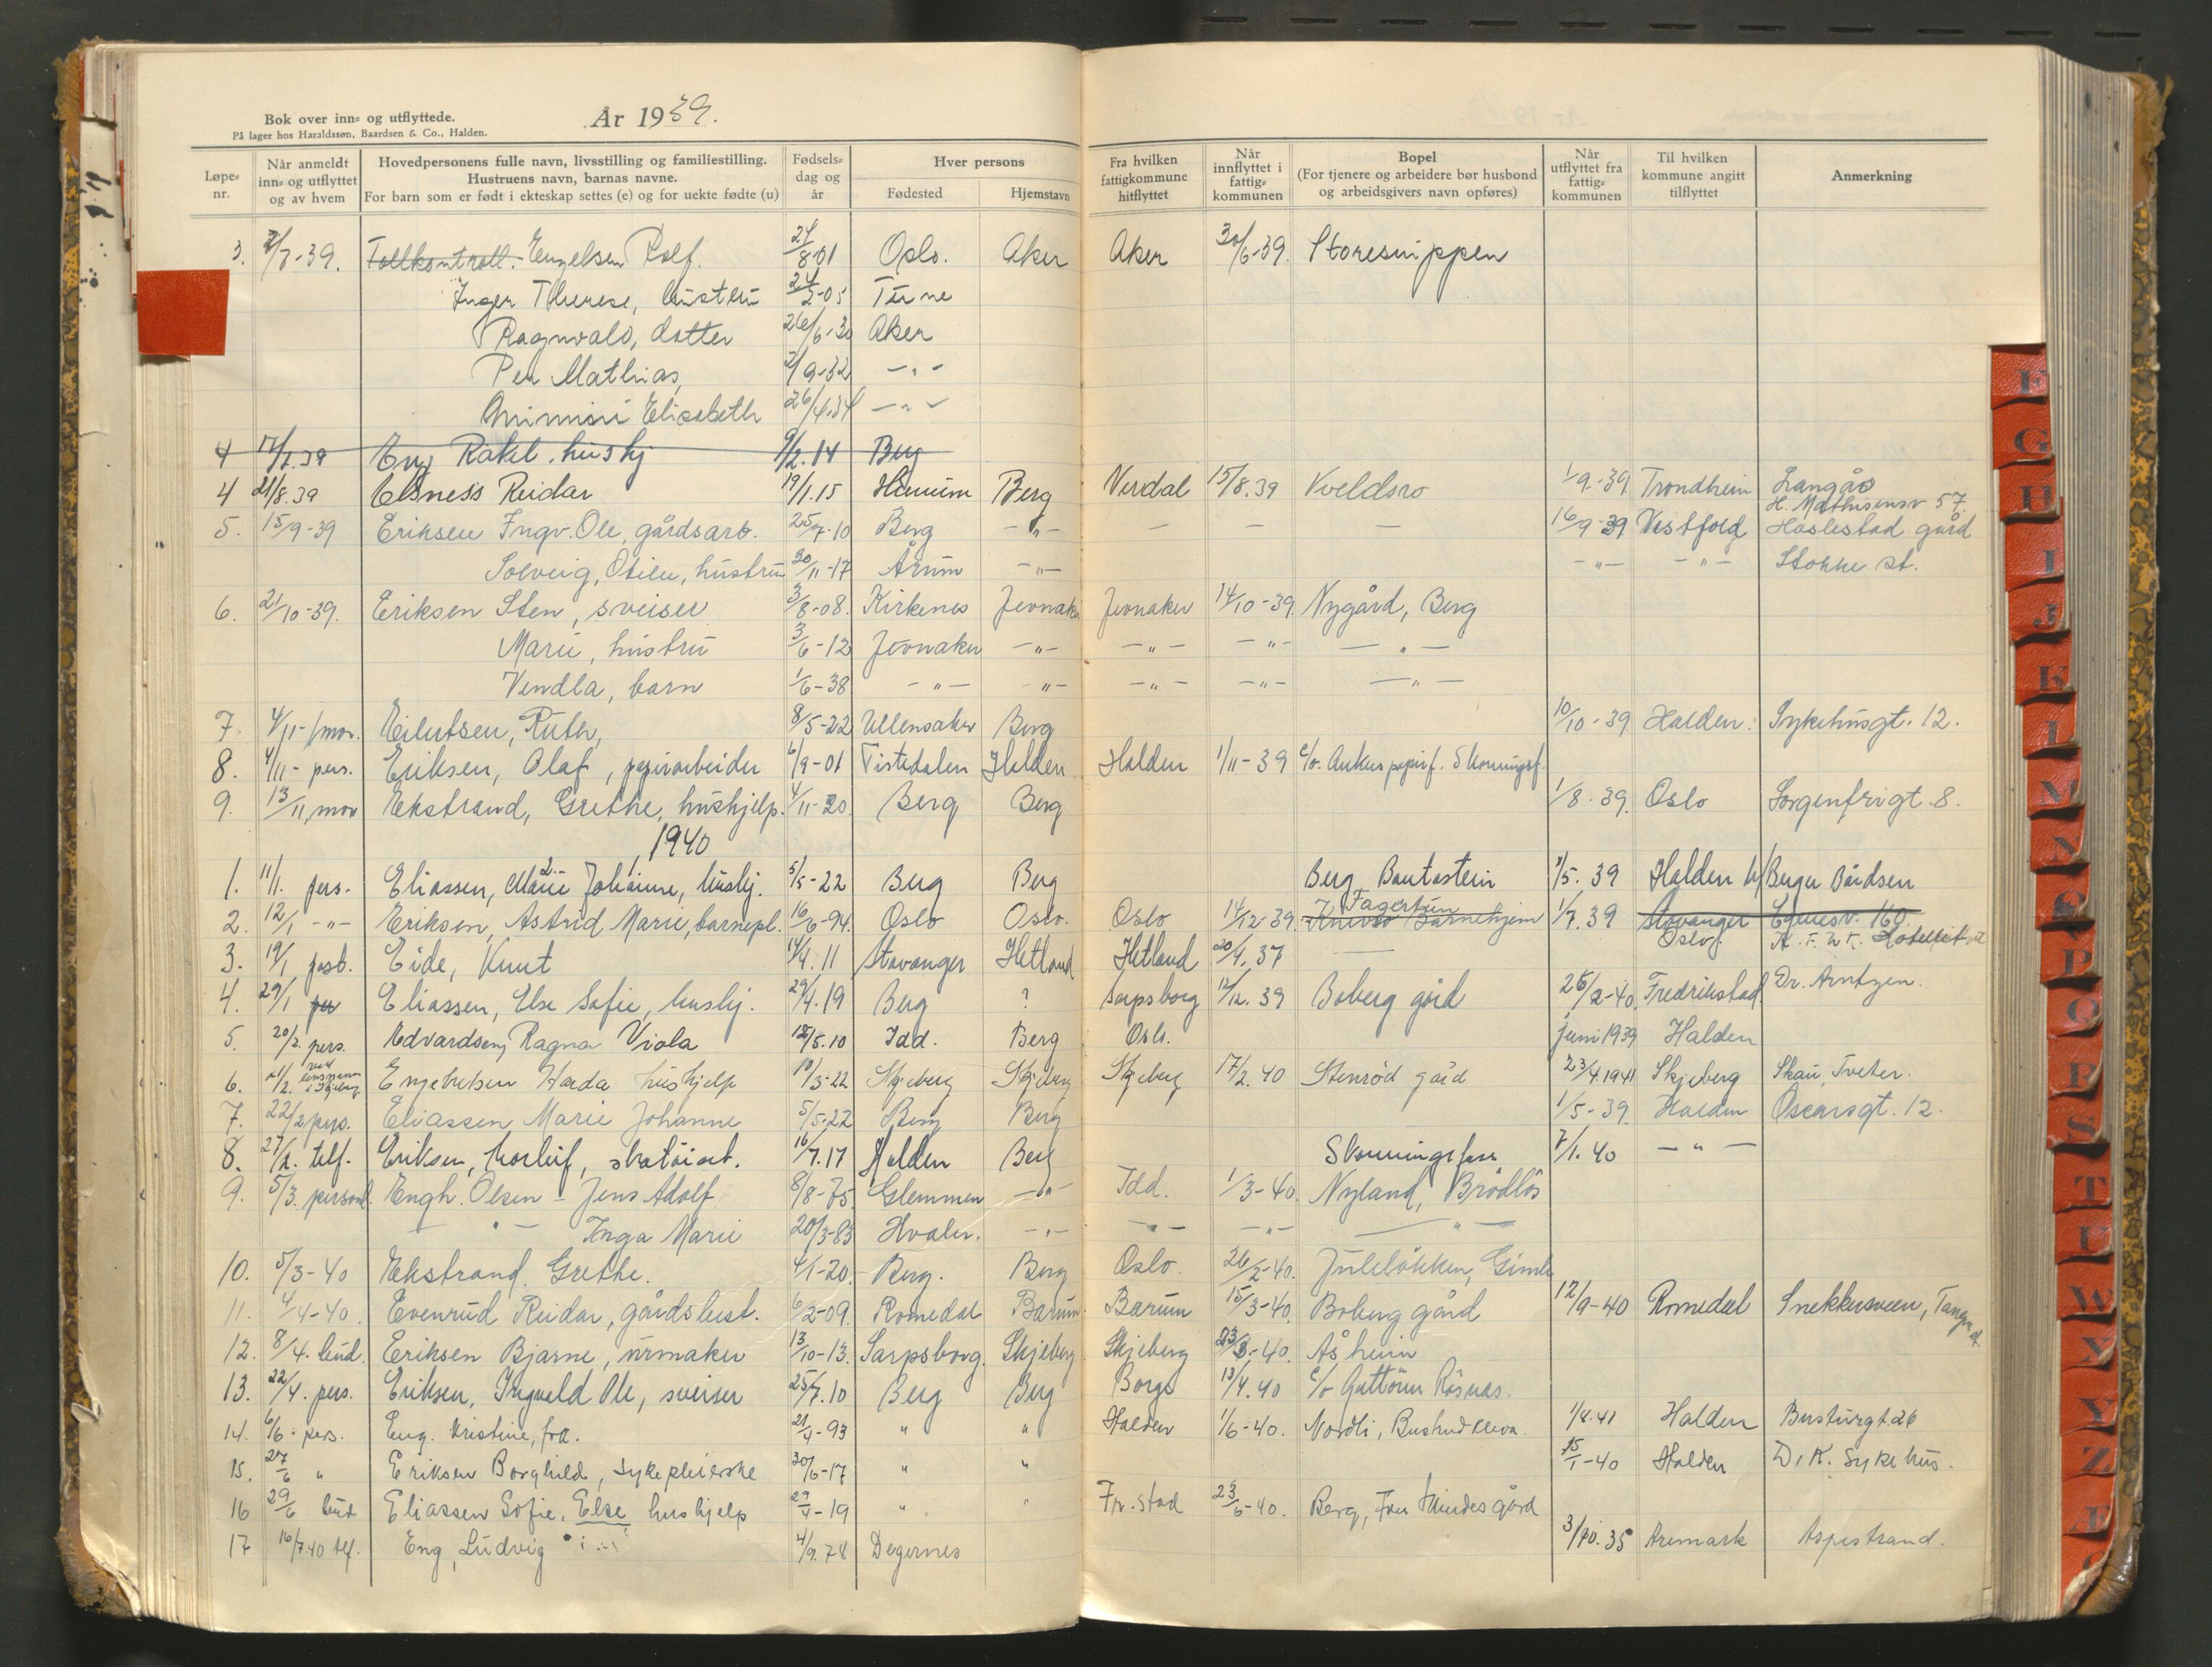 Bok over inn- og utflyttede.
På lager hos Haraldssøn, Baardsen & Co., Halden.
År 1939.
Løpe-nr. Når anmeldt inn- og utflyttet og av hvem Hovedpersonens fulle navn, livsstilling og familiestilling. Hustruens navn, barnas navne. For barn som er født i ekteskap settes (e) og for uekte fødte (u) Fødselsdag og år Hver persons Fødested Hjemstavn Fra hvilken fattigkommune hitflyttet Når innflyttet i fattigkommunen Bopel (For tjenere og arbeidere bør husbond og arbeidsgivers navn opføres) Når utflyttet fra fattigkommunen Til hvilken kommune angitt tilflyttet Anmerkning
3. 3/7-39. Tollkontroll. Engelsen Rolf. 24/8-01 Oslo. Aker Aker 30/6-39. Storesvippen
Inger Therese, hustru 24/2-05 Tune
Ragnvald, datter 26/6-30 Aker
Per Mathias, 2/9-32 -"-
Elisabeth 26/4-34 -"-
4 17/7.39 Eng Rakel. hushj 9/2.14 Berg
4 21/8.39 Elsness Reidar 19/1.15 Berg Verdal 15/8.39 Kveldsro 1/9-39 Trondheim Langås H. Mathisensv 57
5. 15/9-39 Eriksen Ingv. Ole, gårdsarb. 25/7-10 Berg -"- - - - 16/9-39 Vestfold Haslestad gård
Solveig, Otilie, hustru 30/11-17 Årum -"- -"- -"- Stokke st.
6. 21/10-39. Eriksen Sten, sveiser 3/8-08. Kirkenes Jevnaker Jevnaker 14/10-39. Nygård, Berg
Marie, hustru 3/6-12 Jevnaker -"- -"- -"- -"-
Vendla, barn 1/6-38 -"- -"- -"- -"- -"-
7. 4/11- mor. Eilertsen, Ruth, 8/5-22 Ullensaker Berg 10/10-39 Halden. Sykehusgt. 12.
8. 4/11- pers. Eriksen, Olaf, papirarbeider 6/9-01 Tistedalen Halden Halden 1/11-39 c/o. Ankers papirf. Skonningsf.
9. 13/11, mor Ekstrand, Grethe, hushjelp. 4/11-20 Berg Berg 1/8.39. Oslo Sorgenfrigt. 8.
1940
1. 11/1. pers. Eliassen, Marie Johanne, hushj. 5/5-22 Berg Berg Berg Bautastein 1/5.39 Halden Berger Bårdsen
2. 12/1 -"- Eriksen, Astrid Marie, barnepl. 16/6-94. Oslo Oslo. Oslo 14/12-39. Fagertun Barnehjem 1/7.39 Stavanger Egenesv. 160.
Oslo. K.F.U.K.
3. 19/1 post. Eide, Knut 14/4.11 Stavanger Hetland Hetland 20/4.37 -
4. 29/1 per Eliassen, Else Sofie, hushj. 29/4.19 Berg ? Sarpsborg 12/12.39 Boberg gård 26/2-40. Fredrikstad Dr. Arntzen.
5. 20/2. pers. Edvardsen, Ragna Viola 12/5.10 Idd. Berg Oslo. juni 1939 Halden
6. 21/2. ved lensmann i Skjeberg Engebretsen Harda hushjelp 10/3-22 Skjeberg Skjeberg Skjeberg 17/2.40 Stenrød gård 23/4.1941 Skjeberg Skau, Tveter.
7. 22/2 pers. Eliassen Marie Johanne 5/5-22 Berg Berg 1/5-39. Halden Oscarsgt. 12.
8. 27/2. telf. Eriksen, Thorleif, skotøiarb. 16/7.17 Halden Berg Skonningsfoss 7/1.40 -"-
9. 5/3. personl. Engh. Olsen - Jens Adolf 8/8-75. Glemmen -"- Idd. 1/3-40. Nyland, Brødløs
-"- Inga Marie 20/3-83 Hvaler. -"- -"- -"- -"-
10. 5/3-40 Ekstrand Grethe. 4/1-20. Berg. Berg Oslo. 26/2-40. Juleløkken, Gimle
11. 4/4-40. Evenrud Reidar, gårdsbest. 6/2-09. Romedal Bærum. Bærum 15/3-40. Boberg gård 12/9-40 Romedal Snekkersveen, Tangen st.
12. 8/4. bud. Eriksen Bjarne, urmaker 13/10-13. Sarpsborg. Skjeberg Skjeberg 23/3-40. Åsheim
13. 22/4. pers. Eriksen, Ingvald Ole, sveiser 25/7.10 Berg Berg Borge 13/4.40 c/o Guttorm Røsnæs.
14. 6/6- pers. Eng. Kristine, frk. 21/4-93 " " Halden 1/6-40. Nordli, 1/4.41 Halden Busterudgt. 26
15. 27/6 " Eriksen Borghild, sykepleierske 30/6-17 " " 15/1-40 Halden D.I.K. Sykehus.
16 29/6 bud Eliassen Sofie, Else hushjelp 29/4-19 " " Fr.stad 23/6-40. Berg, Fru Mindes gård
17 16/7.40 tlf. Eng, Ludvig 4/9.78 Degernes 3/10.35 Aremark Aspestrand.
F
G
H
I
J
K
L
M
N
O
P
Q
R
S
T
U
W
X
Y
Z
Æ
Ø